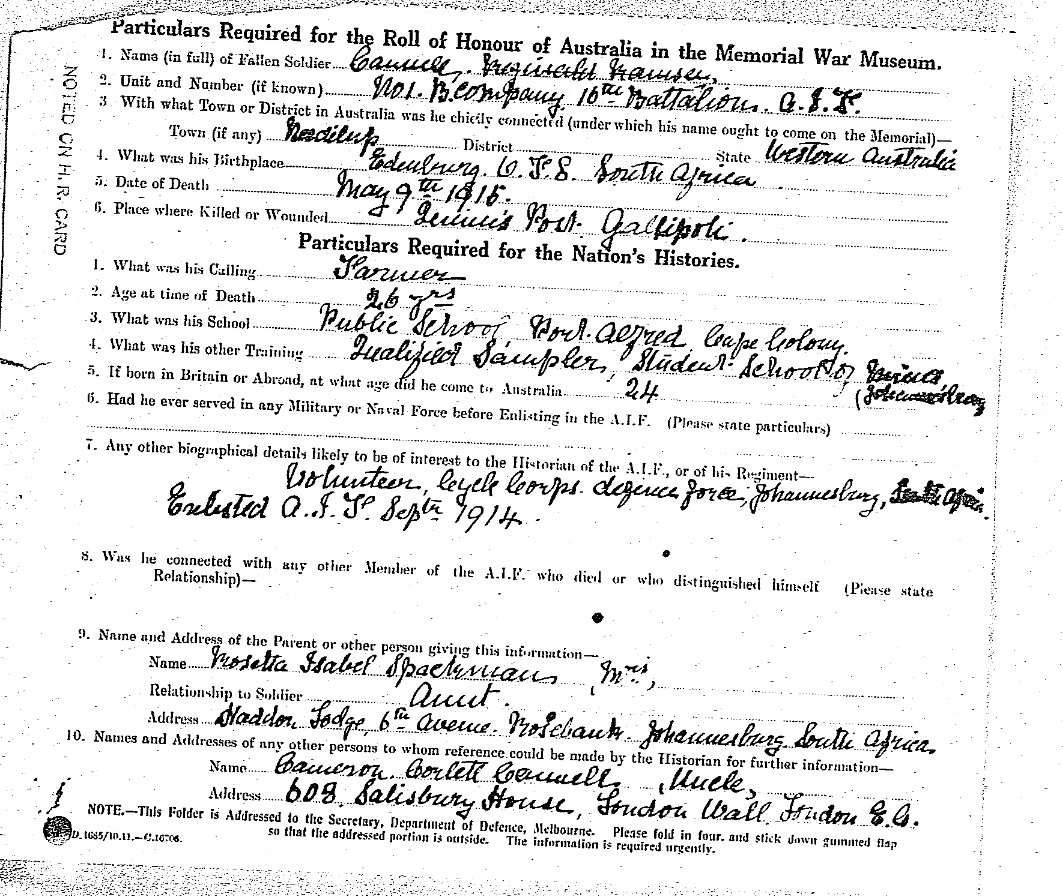 Particulars Required for the Roll of Honour of Australia in the Memorial War Museum.
1. Name (in full) of Fallen Soldier Cannell, Reginald Ramsey,
2. Unit and Number (if known) B. Company 16th Battalion. A.I.F.
3 With what Town or District in Australia was he chiefly connected (under which his name ought to come on the Memorial)—
Town (if any) Needilup District State Western Australia
4. What was his Birthplace Edenburg. O.F.S. South Africa
5. Date of Death May 9th 1915.
6. Place where Killed or Wounded Quinns Post. Gallipoli.
Particulars Required for the Nation's Histories.
1. What was his Calling Farmer
2. Age at time of Death 26 yrs
3. What was his School Public School Port Alfred Cape Colony.
4. What was his other Training Qualified Sampler, Student School of Mines,
5. If born in Britain or Abroad, at what age did he come to Australia 24 (Johannesburg
6. Had he ever served in any Military or Naval Force before Enlisting in the A.I.F. (Please state particulars)
7. Any other biographical details likely to be of interest to the Historian of the A.I.F., or of his Regiment—
Volunteer, Cycle Corps. defence force, Johannesburg, South Africa.
Enlisted A.I.F. Septr 1914.
8. Was he connected with any other Member of the A.I.F. who died or who distinguished himself (Please state
Relationship)—
9. Name and Address of the Parent or other person giving this information—
Name Rosetta Isabel Spackman (Mrs),
Relationship to Soldier Aunt.
Address Haddon Lodge, 6th Avenue. Rosebank. Johannesburg South Africa
10. Names and Addresses of any other persons to whom reference could be made by the Historian for further information—
Name Cameron Corlett Cannell (Uncle)
Address 608, Salisbury House, London Wall London E.C.
NOTE.—This Folder is Addressed to the Secretary, Department of Defence, Melbourne. Please fold in four, and stick down gummed flap
so that the addressed portion is outside. The information is required urgently.
D.1685/10.11.—C.16706.
NOTED ON H.R. CARD